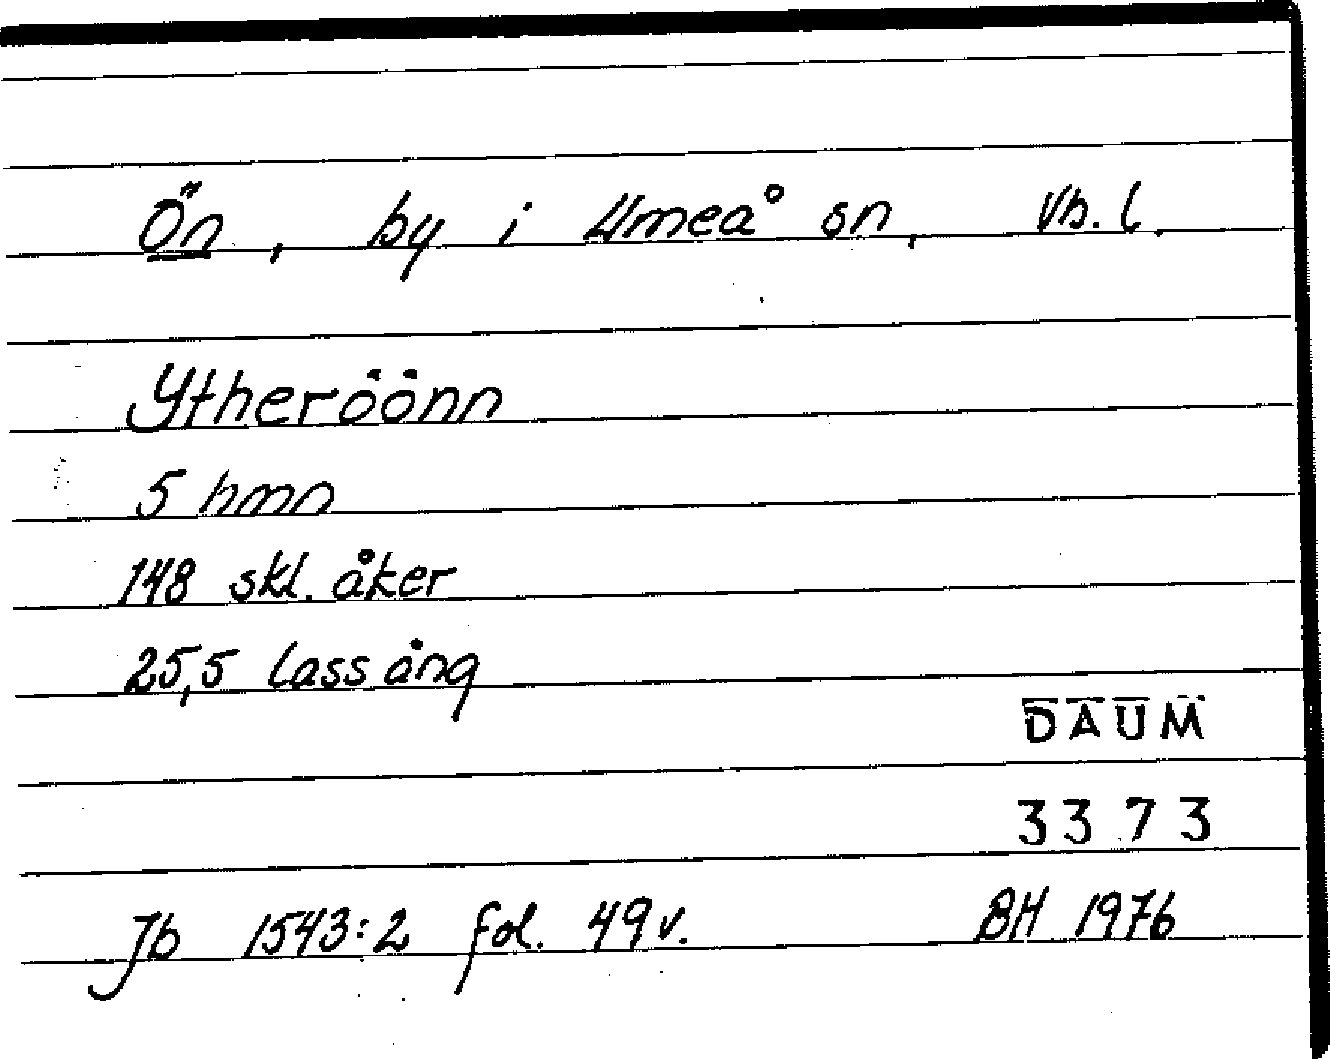 Ön, by i Umeå sn, Vb. l.
Ytheröönn
5 hmn
148 skl. åker
25,5 lass äng
DAUM
3373
Jb 1543:2 fol. 49 v. BH 1976